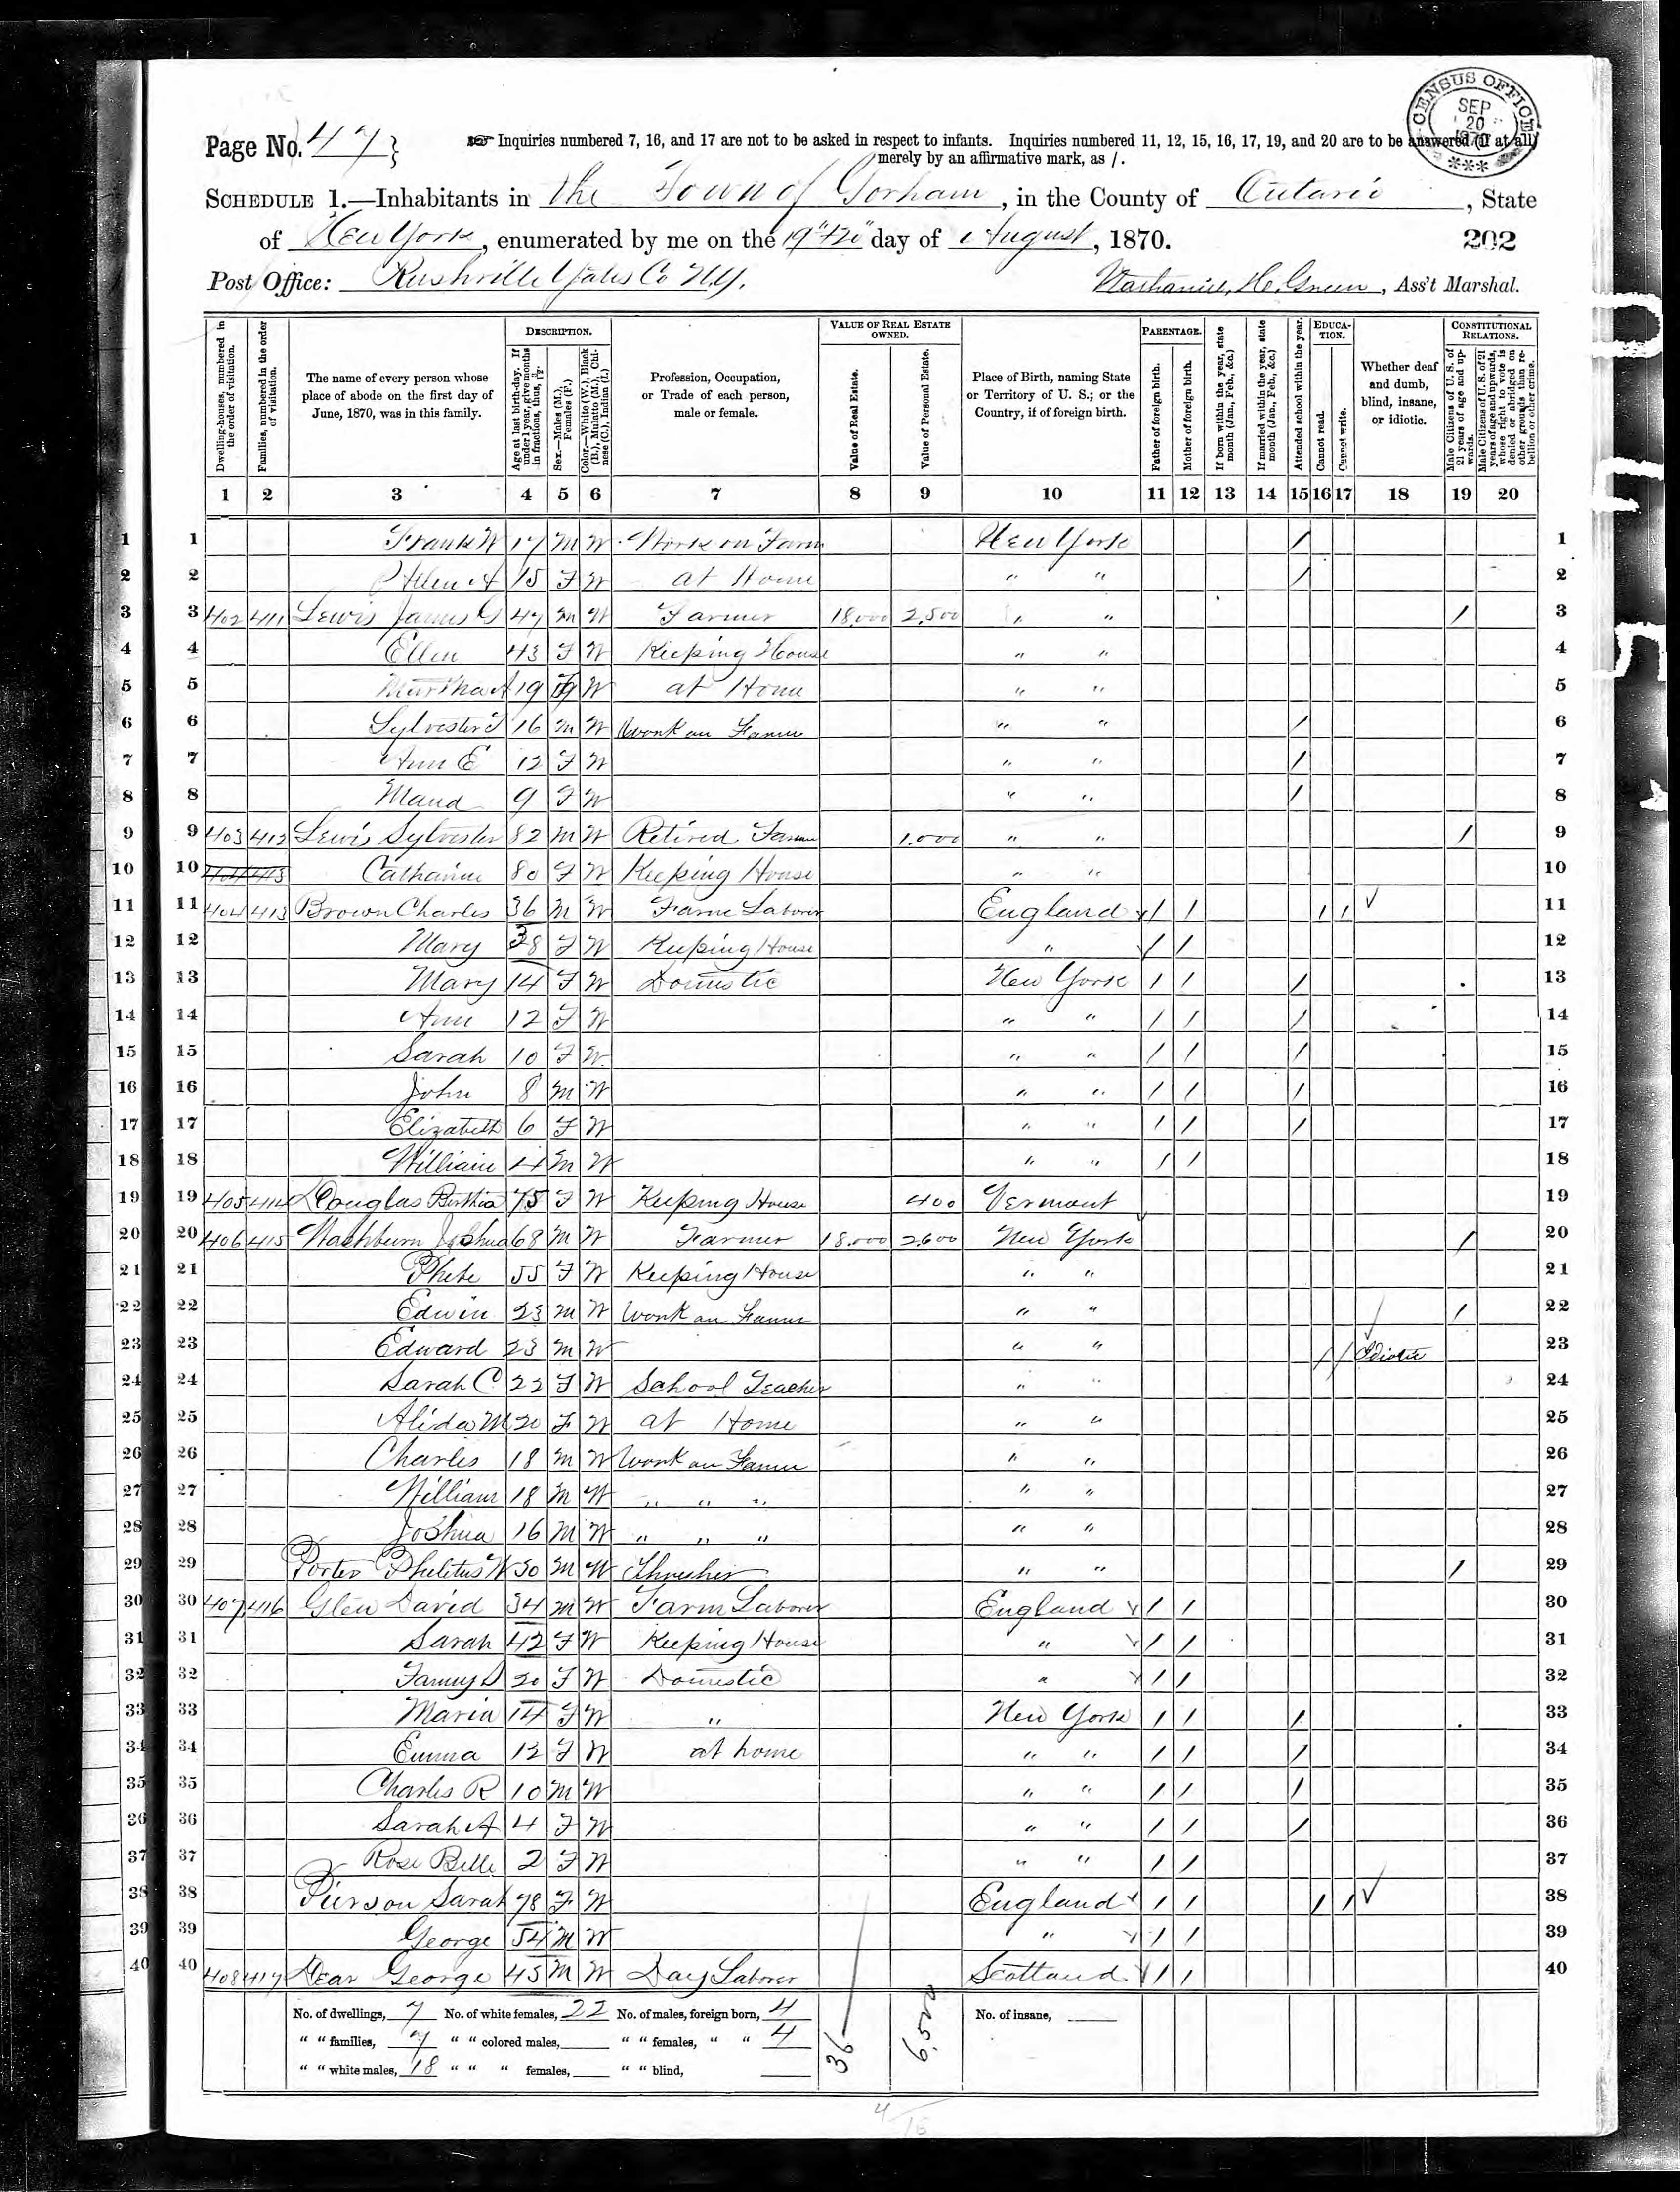 Page No. 47
Inquiries numbered 7, 16, and 17 are not to be asked in respect to infants. Inquiries numbered 11, 12, 15, 16, 17, 19, and 20 are to be answered (if at all)
merely by an affirmative mark, as /.
CENSUS OFFICE SEP 20 1870 ***
SCHEDULE 1.—Inhabitants in the Town of Gorham, in the County of Ontario, State
of New York, enumerated by me on the 19"+20" day of August, 1870.
202
Post Office: Rushville Yates Co N.Y.
Nathaniel H. Green, Ass't Marshal.
Dwelling-houses, numbered in the order of visitation.
Families, numbered in the order of visitation.
The name of every person whose place of abode on the first day of June, 1870, was in this family.
DESCRIPTION.
Age at last birth-day. If under 1 year, give months in fractions, thus, 3/12.
Sex.—Males (M.), Females (F.)
Color.—White (W.), Black (B.), Mulatto (M.), Chinese (C.), Indian (I.)
Profession, Occupation, or Trade of each person, male or female.
VALUE OF REAL ESTATE OWNED.
Value of Real Estate.
Value of Personal Estate.
Place of Birth, naming State or Territory of U. S.; or the Country, if of foreign birth.
PARENTAGE.
Father of foreign birth.
Mother of foreign birth.
If born within the year, state month (Jan., Feb., &c.)
If married within the year, state month (Jan., Feb., &c.)
Attended school within the year.
EDUCATION.
Cannot read.
Cannot write.
Whether deaf and dumb, blind, insane, or idiotic.
CONSTITUTIONAL RELATIONS.
Male Citizens of U. S. of 21 years of age and upwards.
Male Citizens of U. S. of 21 years of age and upwards, whose right to vote is denied or abridged on other grounds than rebellion or other crime.
1 2 3 4 5 6 7 8 9 10 11 12 13 14 15 16 17 18 19 20
1 Frank W 17 M W Work on Farm New York / 1
2 Allen A 15 F W at Home " " / 2
3 402 411 Lewis James G 47 M W Farmer 18,000 2,500 " " / 3
4 Ellen 43 F W Keeping House " " 4
5 Martha A 19 F W at Home " " 5
6 Sylvester 16 M W Work on Farm " " / 6
7 Ann E 12 F W " " / 7
8 Maud 9 F W " " / 8
9 403 412 Lewis Sylvester 82 M W Retired Farmer 1,000 " " / 9
10 404 413 Catharine 80 F W Keeping House " " 10
11 404 413 Brown Charles 36 M W Farm Laborer England / / / / 11
12 Mary 38 F W Keeping House " / / 12
13 Mary 14 F W Domestic New York / / / 13
14 Ann 12 F W " " / / / 14
15 Sarah 10 F W " " / / / 15
16 John 8 M W " " / / / 16
17 Elizabeth 6 F W " " / / / 17
18 William 4 M W " " / / 18
19 405 414 Douglas Berthia 75 F W Keeping House 400 Vermont 19
20 406 415 Washburn Joshua 68 M W Farmer 18,000 2,600 New York / 20
21 Phebe 55 F W Keeping House " " 21
22 Edwin 23 M W Work on Farm " " / 22
23 Edward 23 M W " " / / Idiotic 23
24 Sarah C. 22 F W School Teacher " " 24
25 Alida M 20 F W at Home " " 25
26 Charles 18 M W Work on Farm " " 26
27 William 18 M W " " " " " 27
28 Joshua 16 M W " " " " " 28
29 Porter Philetus W 30 M W Thresher " " / 29
30 407 416 Glen David 34 M W Farm Laborer England / / 30
31 Sarah 42 F W Keeping House " / / 31
32 Fanny D 20 F W Domestic " / / 32
33 Maria 14 F W " New York / / / 33
34 Emma 12 F W at home " " / / / 34
35 Charles R 10 M W " " / / / 35
36 Sarah A 4 F W " " / / / 36
37 Rose Belle 2 F W " " / / 37
38 Pierson Sarah 78 F W England / / / / 38
39 George 54 M W " / / 39
40 408 417 Dear George 45 M W Day Laborer Scotland / / 40
No. of dwellings, 7 No. of white females, 22 No. of males, foreign born, 4 No. of insane,
" " families, 7 " " colored males, " " females, " " 4
" " white males, 18 " " " females, " " blind,
36
6,500
4/15